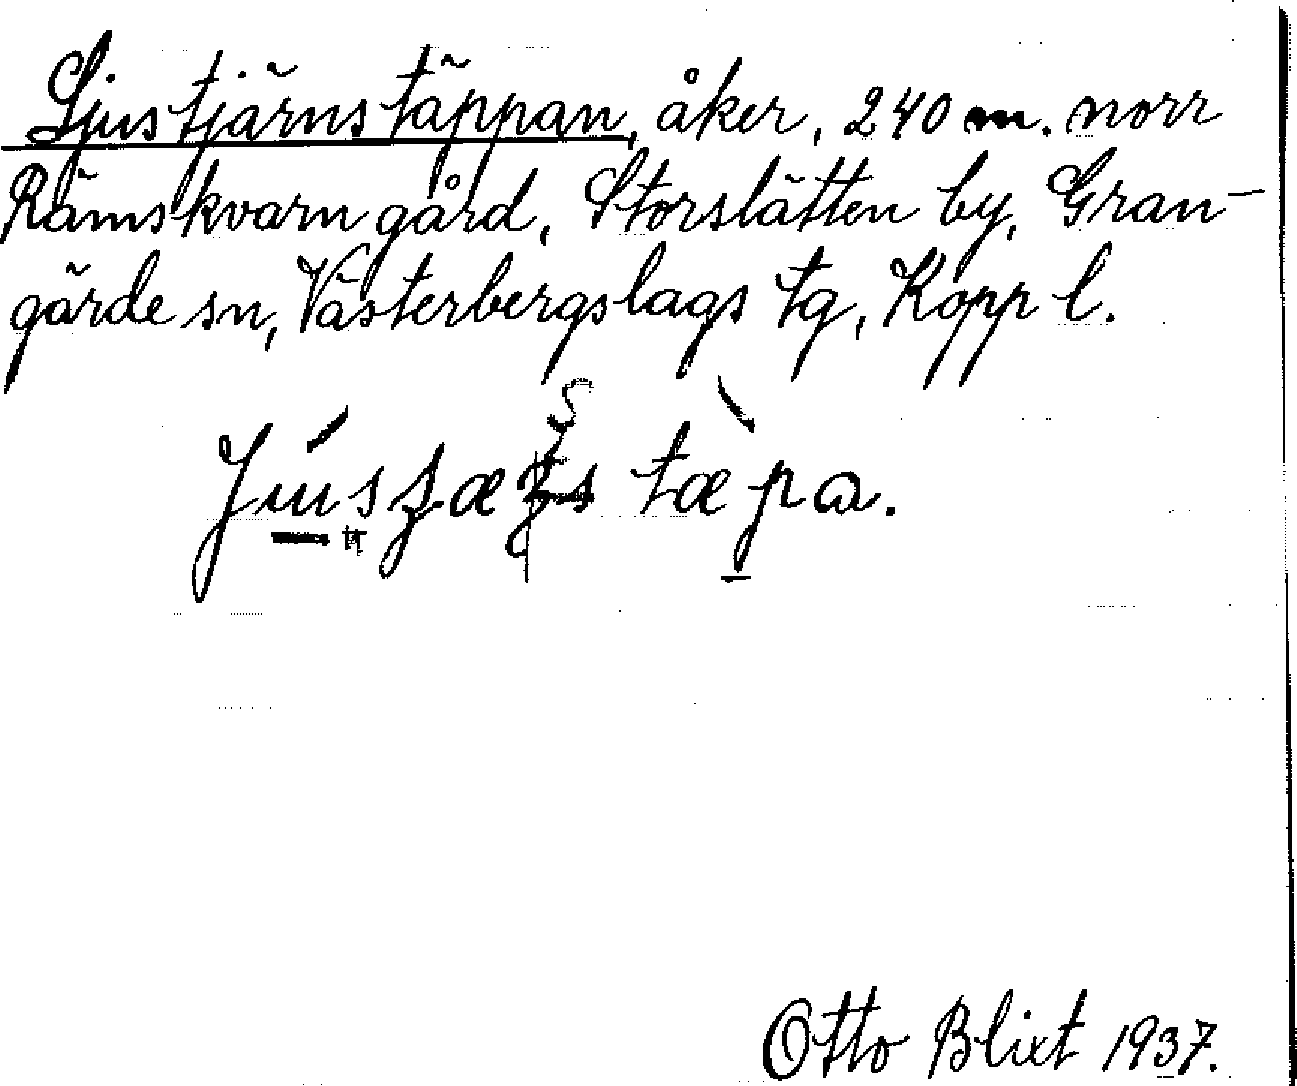 Ljustjärnstäppan, åker, 240 m. norr
Rämskvarn gård, Storslätten by, Gran-
gärde sn, Västerbergslags tg, Kopp l.
tæpa.
Otto Blixt 1937.